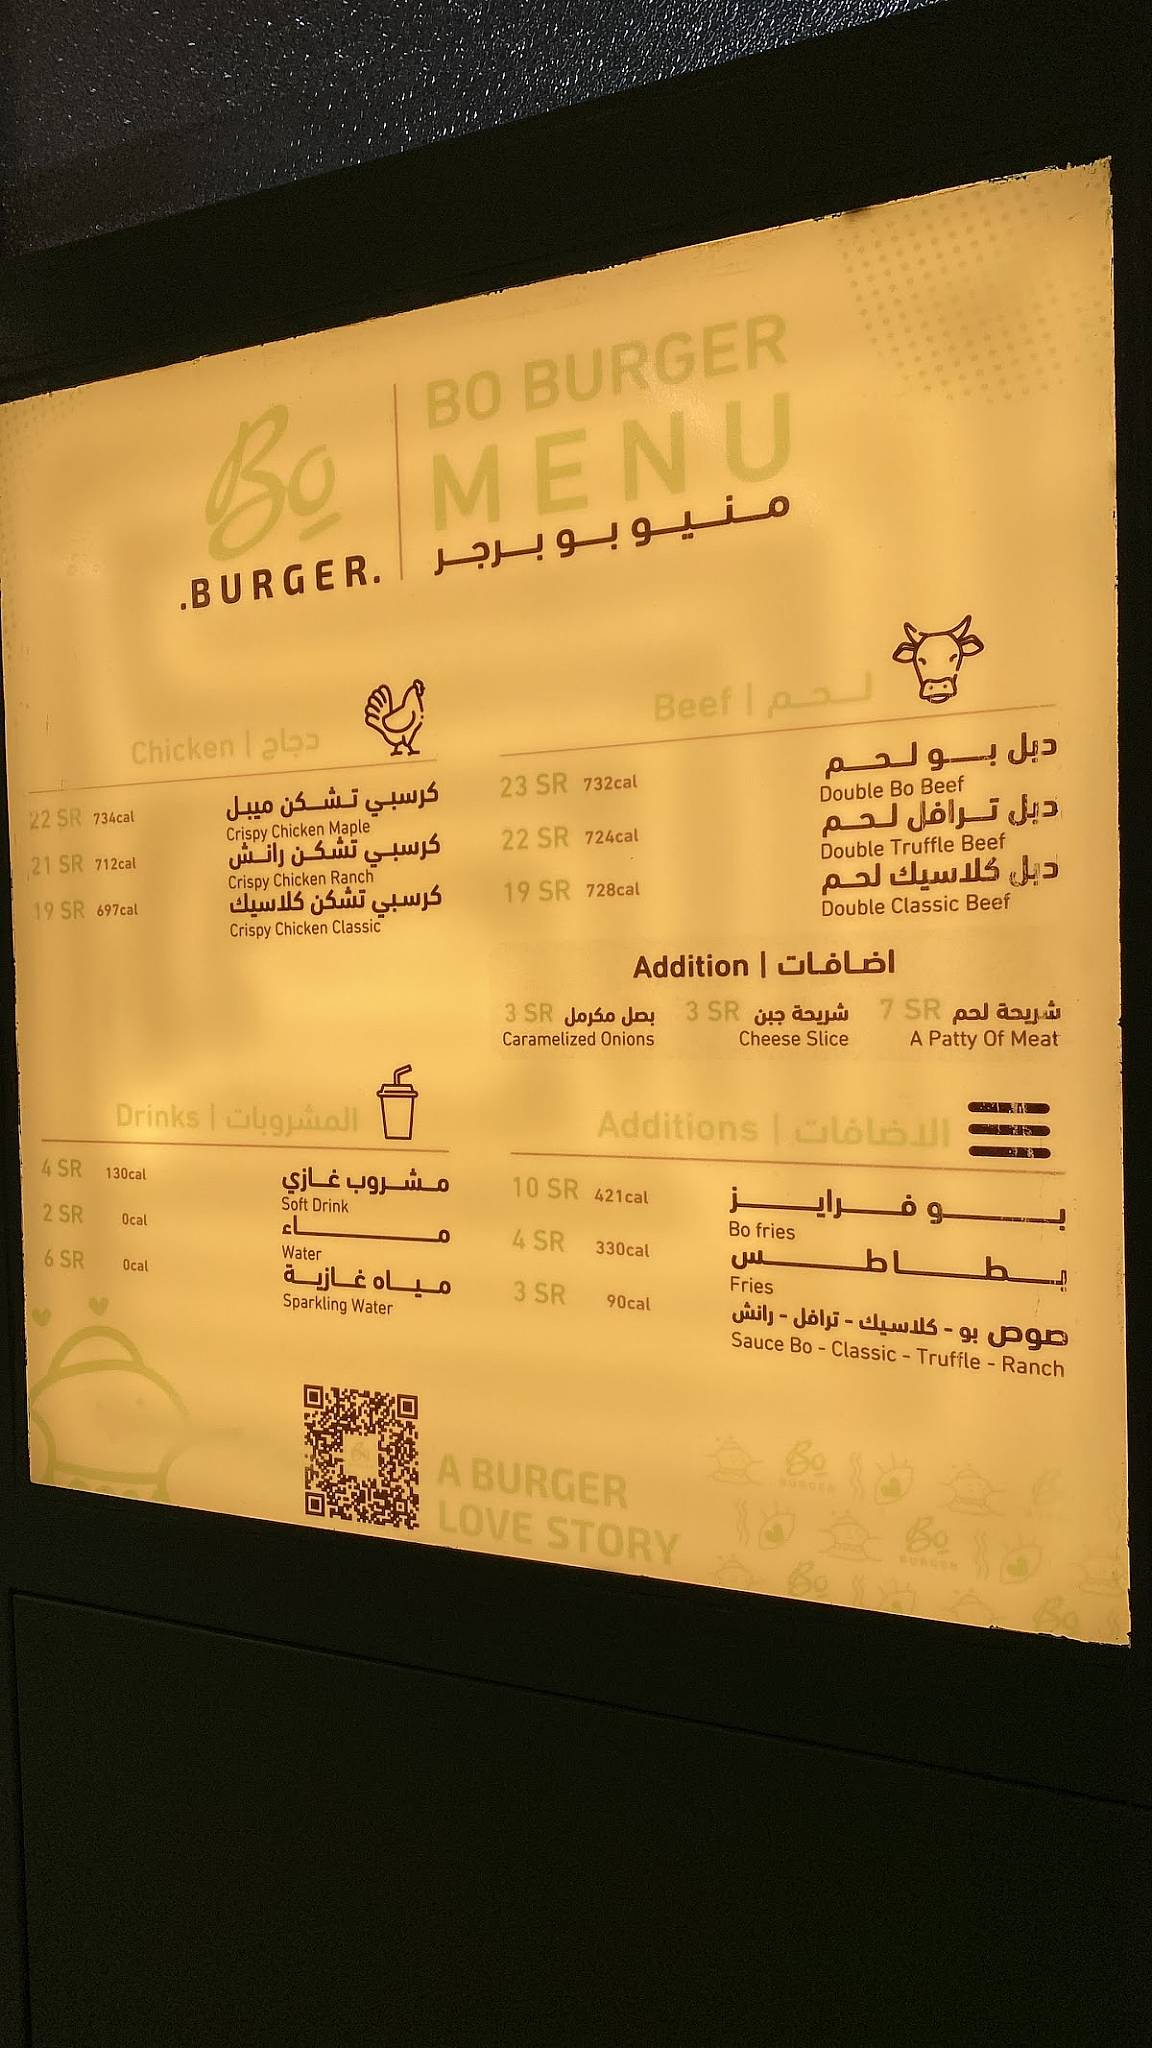 Bo
.BURGER.
BO BURGER
MENU
منيو بو برجر
Chicken | دجاج
22 SR 734cal كرسبي تشكن ميبل
Crispy Chicken Maple
21 SR 712cal كرسبي تشكن رانش
Crispy Chicken Ranch
19 SR 697cal كرسبي تشكن كلاسيك
Crispy Chicken Classic
Beef | لحم
23 SR 732cal دبل بو لحم
Double Bo Beef
22 SR 724cal دبل ترافل لحم
Double Truffle Beef
19 SR 728cal دبل كلاسيك لحم
Double Classic Beef
Addition | اضافات
3 SR بصل مكرمل
Caramelized Onions
3 SR شريحة جبن
Cheese Slice
7 SR شريحة لحم
A Patty Of Meat
Drinks | المشروبات
4 SR 130cal مشروب غازي
Soft Drink
2 SR 0cal ماء
Water
6 SR 0cal مياه غازية
Sparkling Water
Additions | الاضافات
10 SR 421cal بو فرايز
Bo fries
4 SR 330cal بطاطس
Fries
3 SR 90cal صوص بو - كلاسيك - ترافل - رانش
Sauce Bo - Classic - Truffle - Ranch
A BURGER
LOVE STORY
Bo
BURGER
Bo
BURGER
Bo
Bo